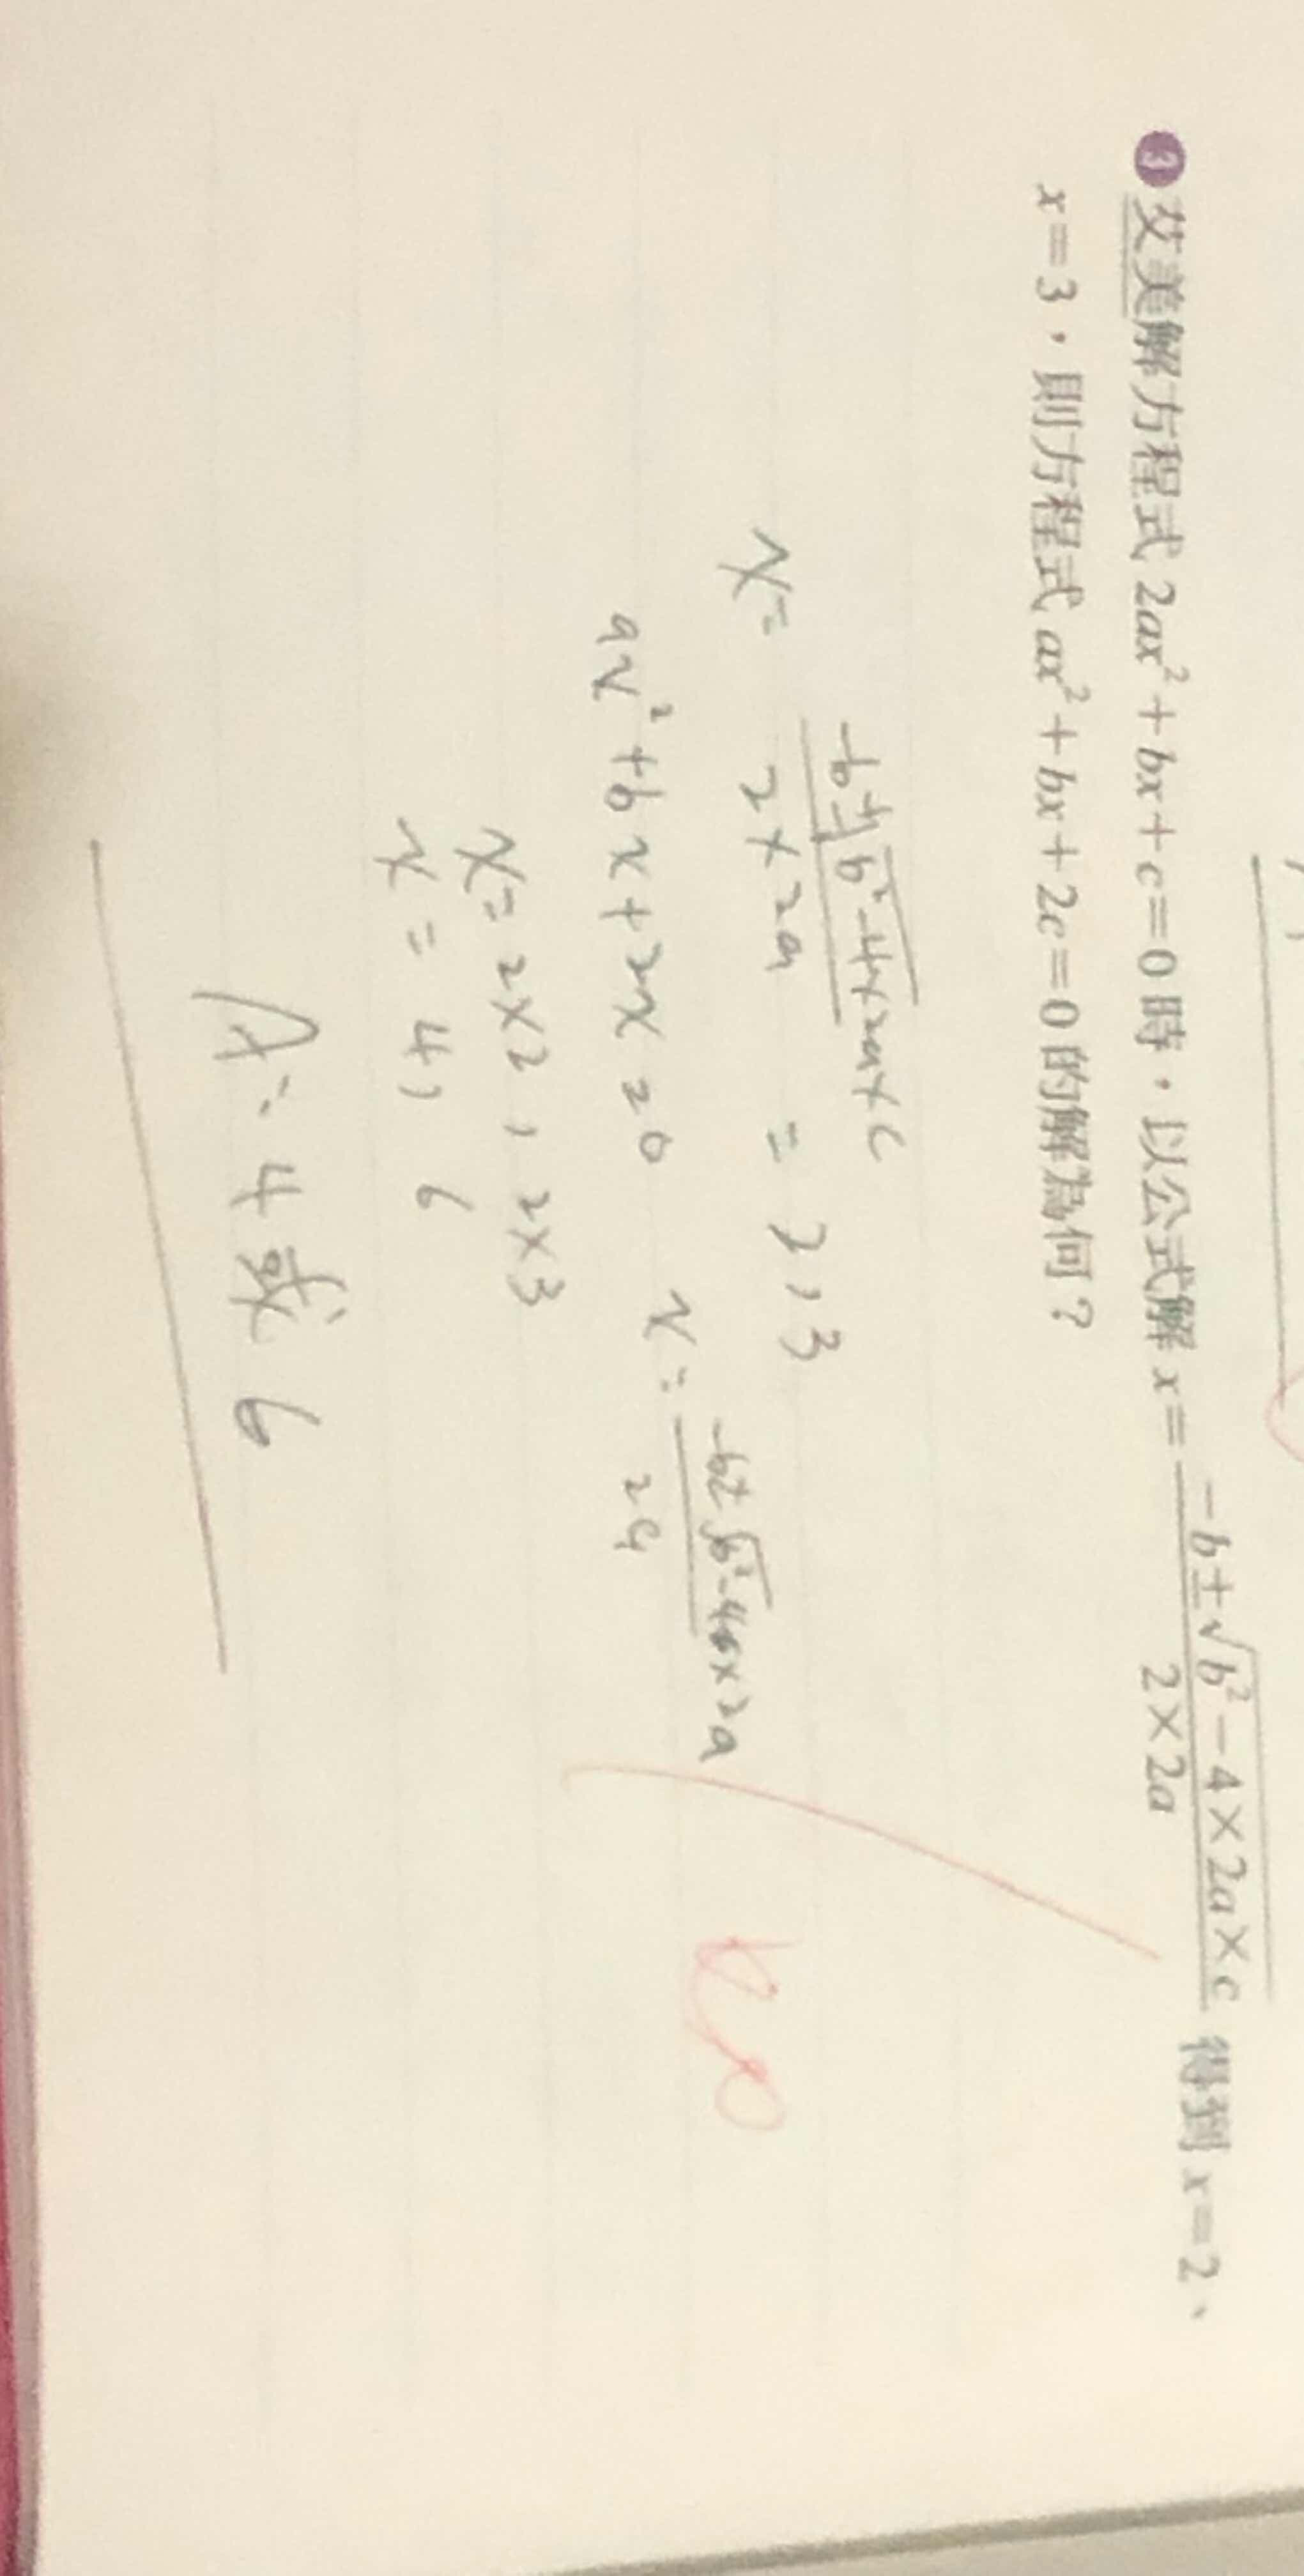 ❸ 艾美解方程式 2ax²+bx+c=0 時，以公式解 x=(-b±√(b²-4×2a×c))/(2×2a) 得到 x=2、
x=3，則方程式 ax²+bx+2c=0 的解為何？
x= (-b±√(b²-4×2a×c))/(2×2a) = 2，3
ax²+bx+2x=0 x= (-b±√(b²-4a×2a))/(2a)
x=2×2，2×3
x=4，6
A：4或6